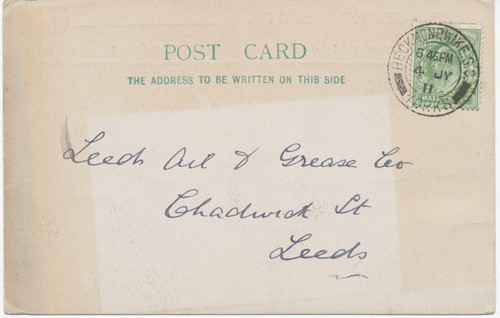 POST CARD
THE ADDRESS TO BE WRITTEN ON THIS SIDE
HECKMONDWIKE S.O.
5.45PM
4 JY
11
YORKS
HALF
Leeds Oil & Grease Co
Chadwick St
Leeds